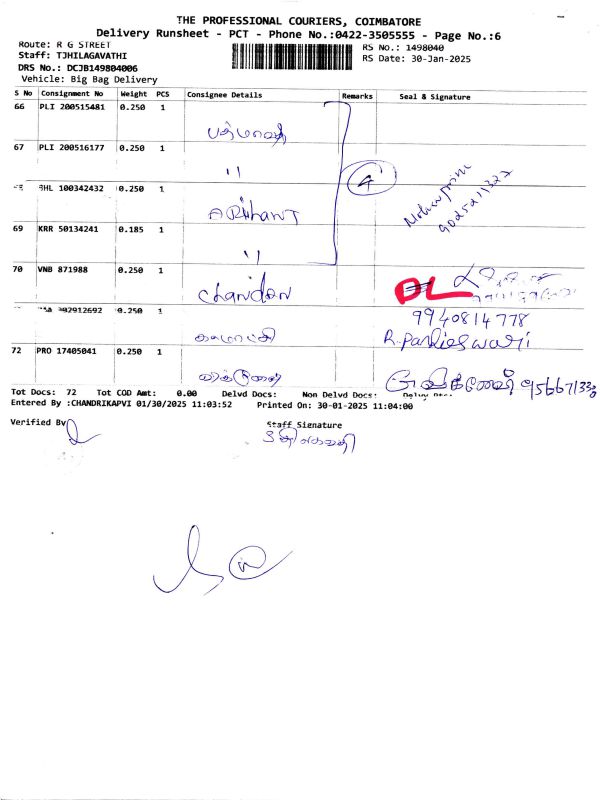 THE PROFESSIONAL COURIERS, COIMBATORE
Delivery Runsheet - PCT - Phone No.:0422-3505555 - Page No.:6
Route: R G STREET
RS No.: 1498040
Staff: TJHILAGAVATHI
RS Date: 30-Jan-2025
DRS No.: DCJB149804006
Vehicle: Big Bag Delivery
S No Consignment No Weight PCS Consignee Details Remarks Seal & Signature
66 PLI 200515481 0.250 1
பத்மாவதி
67 PLI 200516177 0.250 1
''
4
BHL 100342432 0.250 1
ARihanT
9025211322
69 KRR 50134241 0.185 1
''
70 VNB 871988 0.250 1
chandan
DL
382912692 0.250 1
9940814778
காமாட்சி
72 PRO 17405041 0.250 1
Tot Docs: 72 Tot COD Amt: 0.00 Delvd Docs: Non Delvd Docs:
Entered By :CHANDRIKAPVI 01/30/2025 11:03:52 Printed On: 30-01-2025 11:04:00
Verified By
Staff Signature